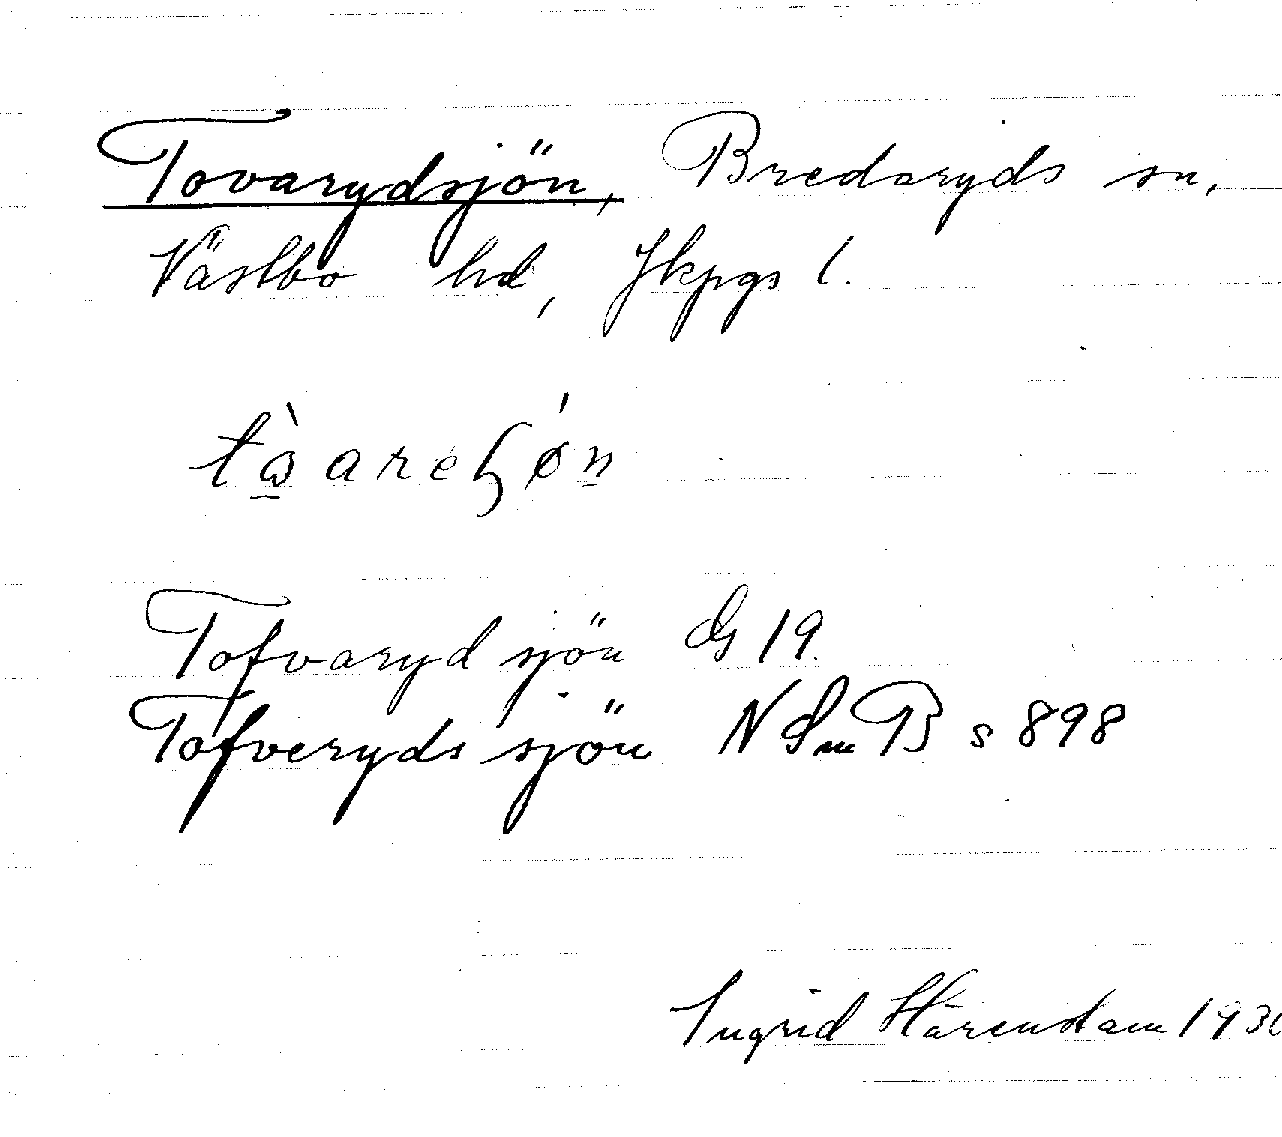 Tovarydsjön, Bredaryds sn,
Västbo hd, Jkpgs l.
Tofvaryd sjön G 19.
Tofveryds sjön N Sm B s 898
Ingrid Härenstam 193